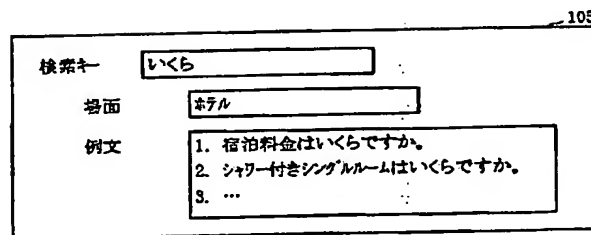 105
検索キー いくら
場面 ホテル
例文 1. 宿泊料金はいくらですか。
2. シャワー付きシングルルームはいくらですか。
3. …